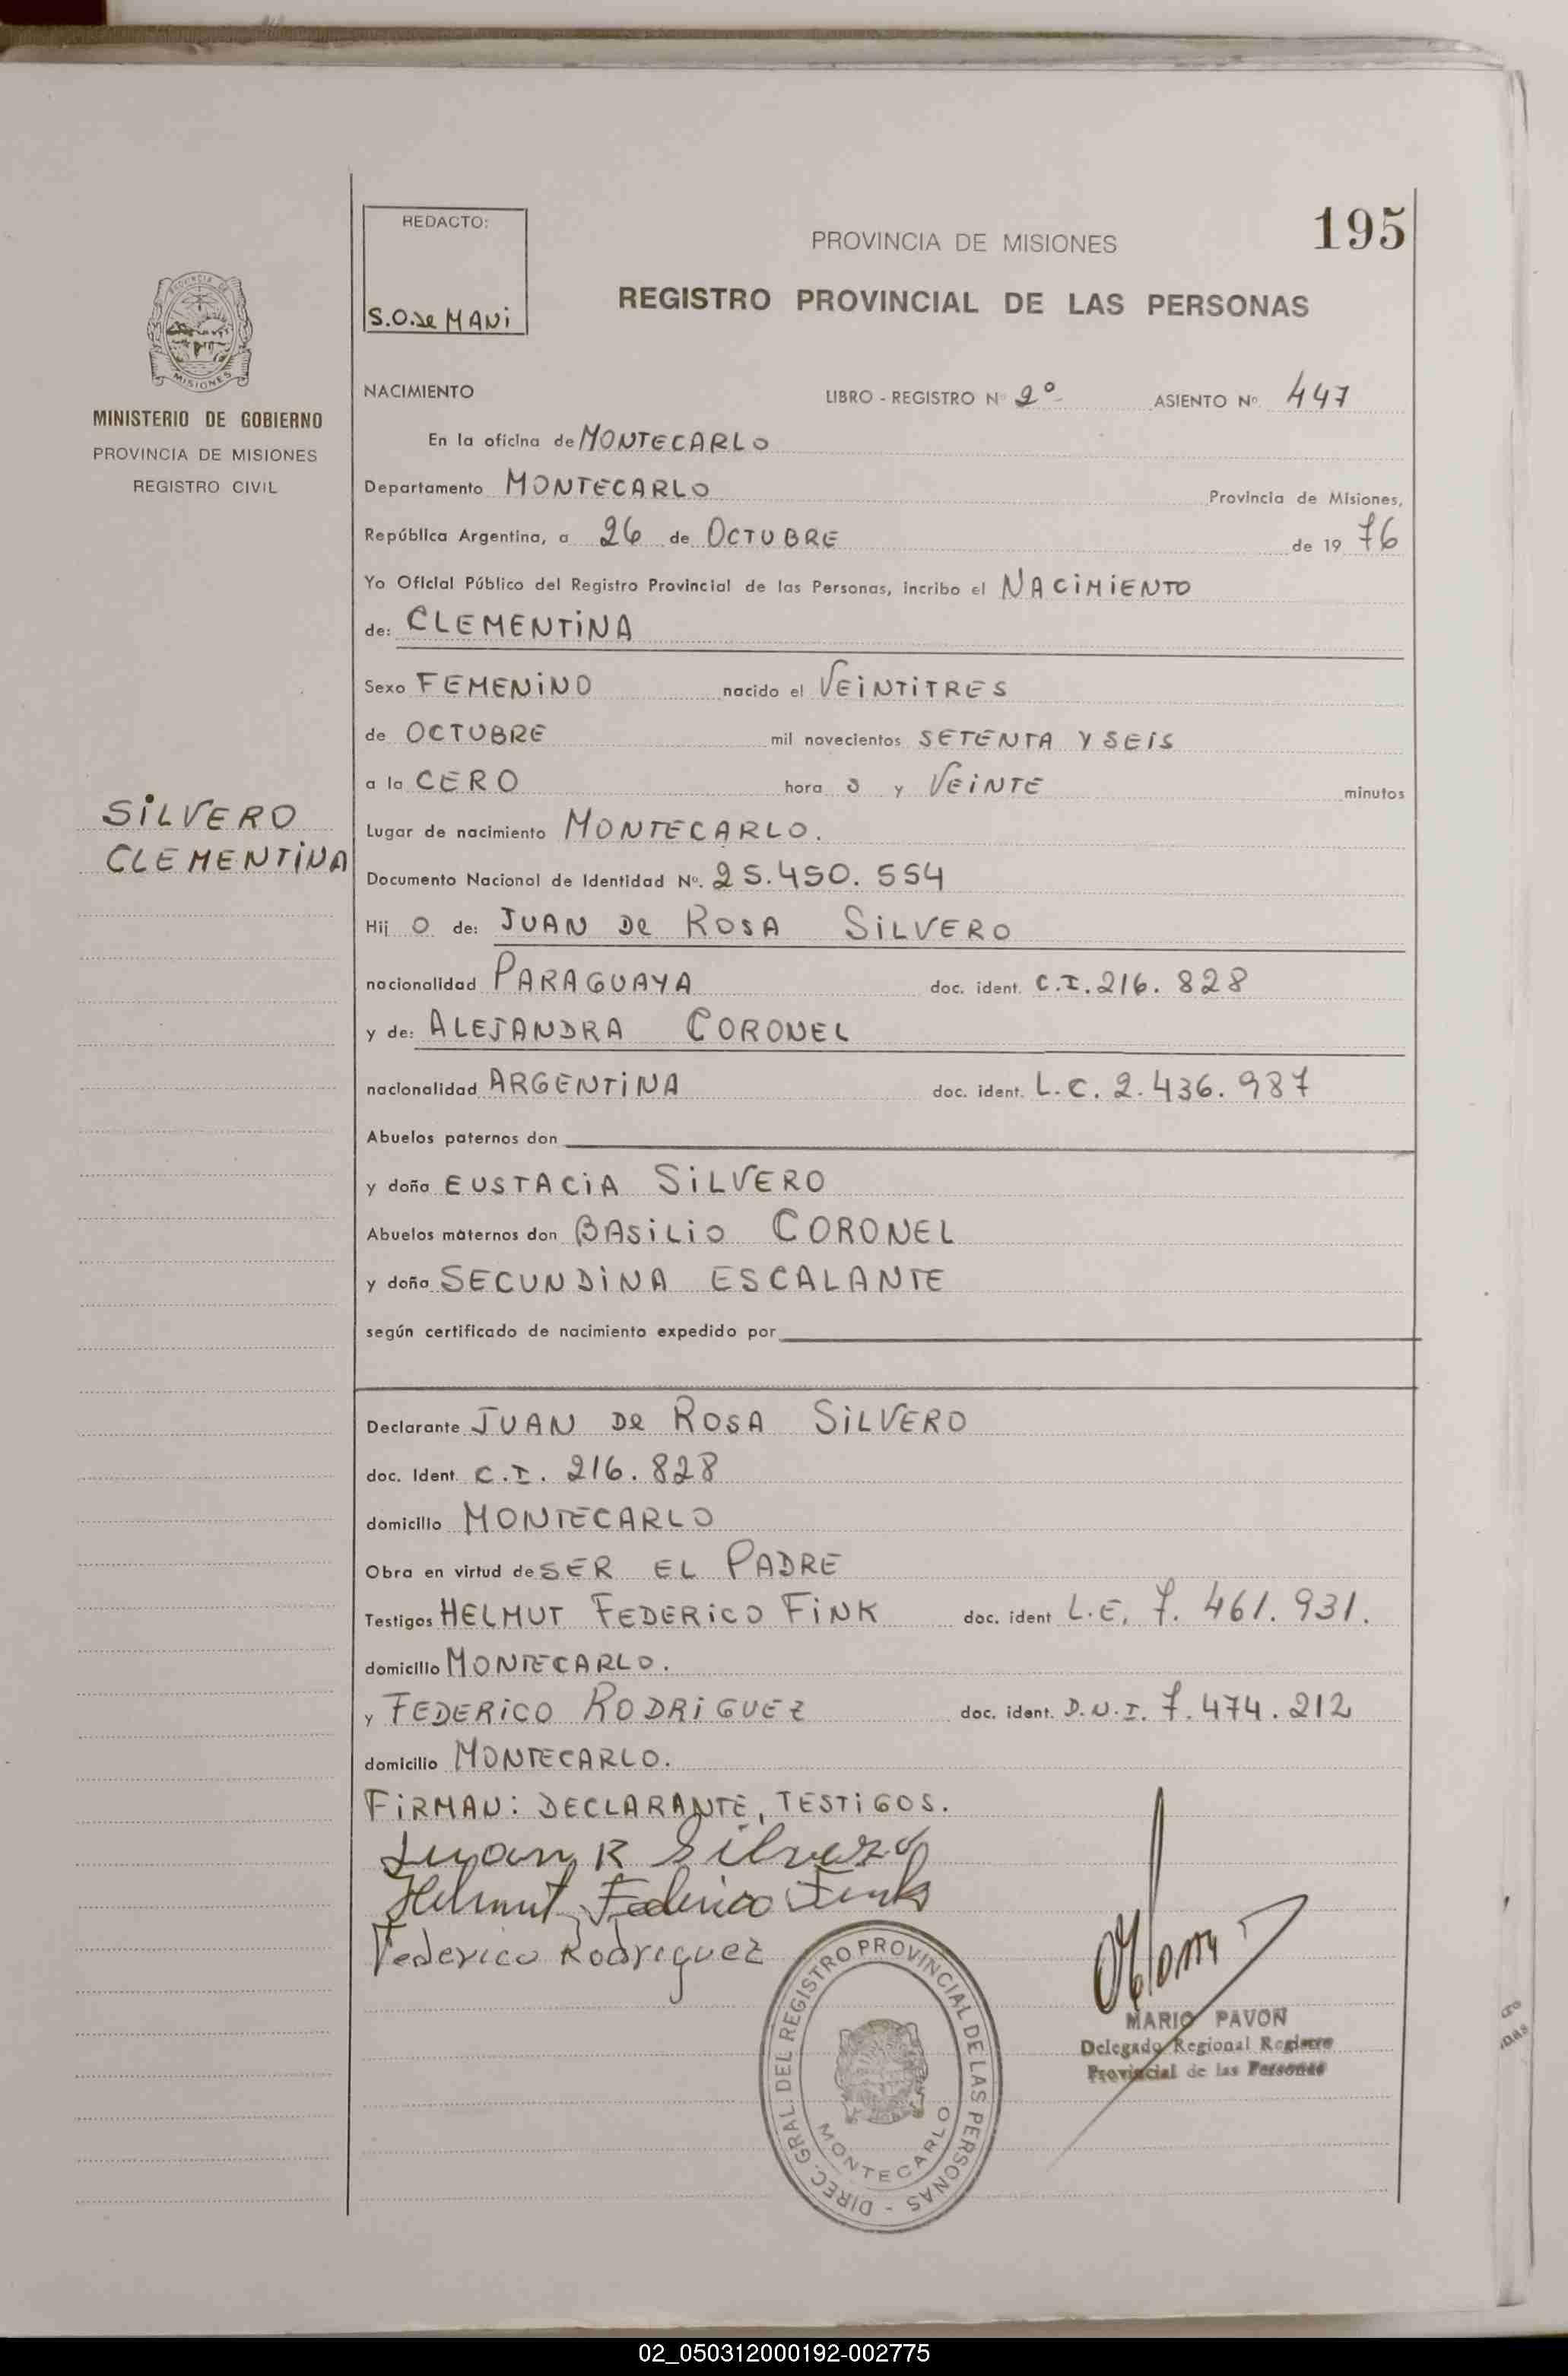 195
REDACTO:
S.O. de MANI
PROVINCIA DE MISIONES
REGISTRO PROVINCIAL DE LAS PERSONAS
PROVINCIA DE
MISIONES
MINISTERIO DE GOBIERNO
PROVINCIA DE MISIONES
REGISTRO CIVIL
SILVERO
CLEMENTINA
NACIMIENTO LIBRO - REGISTRO Nº 2º ASIENTO Nº. 447
En la oficina de MONTECARLO
Departamento MONTECARLO Provincia de Misiones,
República Argentina, a 26 de OCTUBRE de 19 76
Yo Oficial Público del Registro Provincial de las Personas, incribo el NACIMIENTO
de: CLEMENTINA
Sexo FEMENINO nacido el VEINTITRES
de OCTUBRE mil novecientos SETENTA Y SEIS
a la CERO hora S y VEINTE minutos
Lugar de nacimiento MONTECARLO.
Documento Nacional de Identidad Nº. 25.450.554
Hij O de: JUAN DE ROSA SILVERO
nacionalidad PARAGUAYA doc. ident. C.I. 216.828
y de: ALEJANDRA CORONEL
nacionalidad ARGENTINA doc. ident. L.C. 2.436.987
Abuelos paternos don
y doña EUSTACIA SILVERO
Abuelos maternos don BASILIO CORONEL
y doña SECUNDINA ESCALANTE
según certificado de nacimiento expedido por
Declarante JUAN DE ROSA SILVERO
doc. Ident. C.I. 216.828
domicilio MONTECARLO
Obra en virtud de SER EL PADRE
Testigos HELMUT FEDERICO FINK doc. ident L.E. 7.461.931.
domicilio MONTECARLO.
y FEDERICO RODRIGUEZ doc. ident. D.N.I. 7.474.212
domicilio MONTECARLO.
FIRMAN: DECLARANTE, TESTIGOS.
Juan R Silvero
Helmut Federico Fink
Federico Rodriguez
DIREC. GRAL. DEL REGISTRO PROVINCIAL DE LAS PERSONAS -
MONTECARLO
MARIO PAVON
Delegado Regional Registro
Provincial de las Personas
02_050312000192-002775